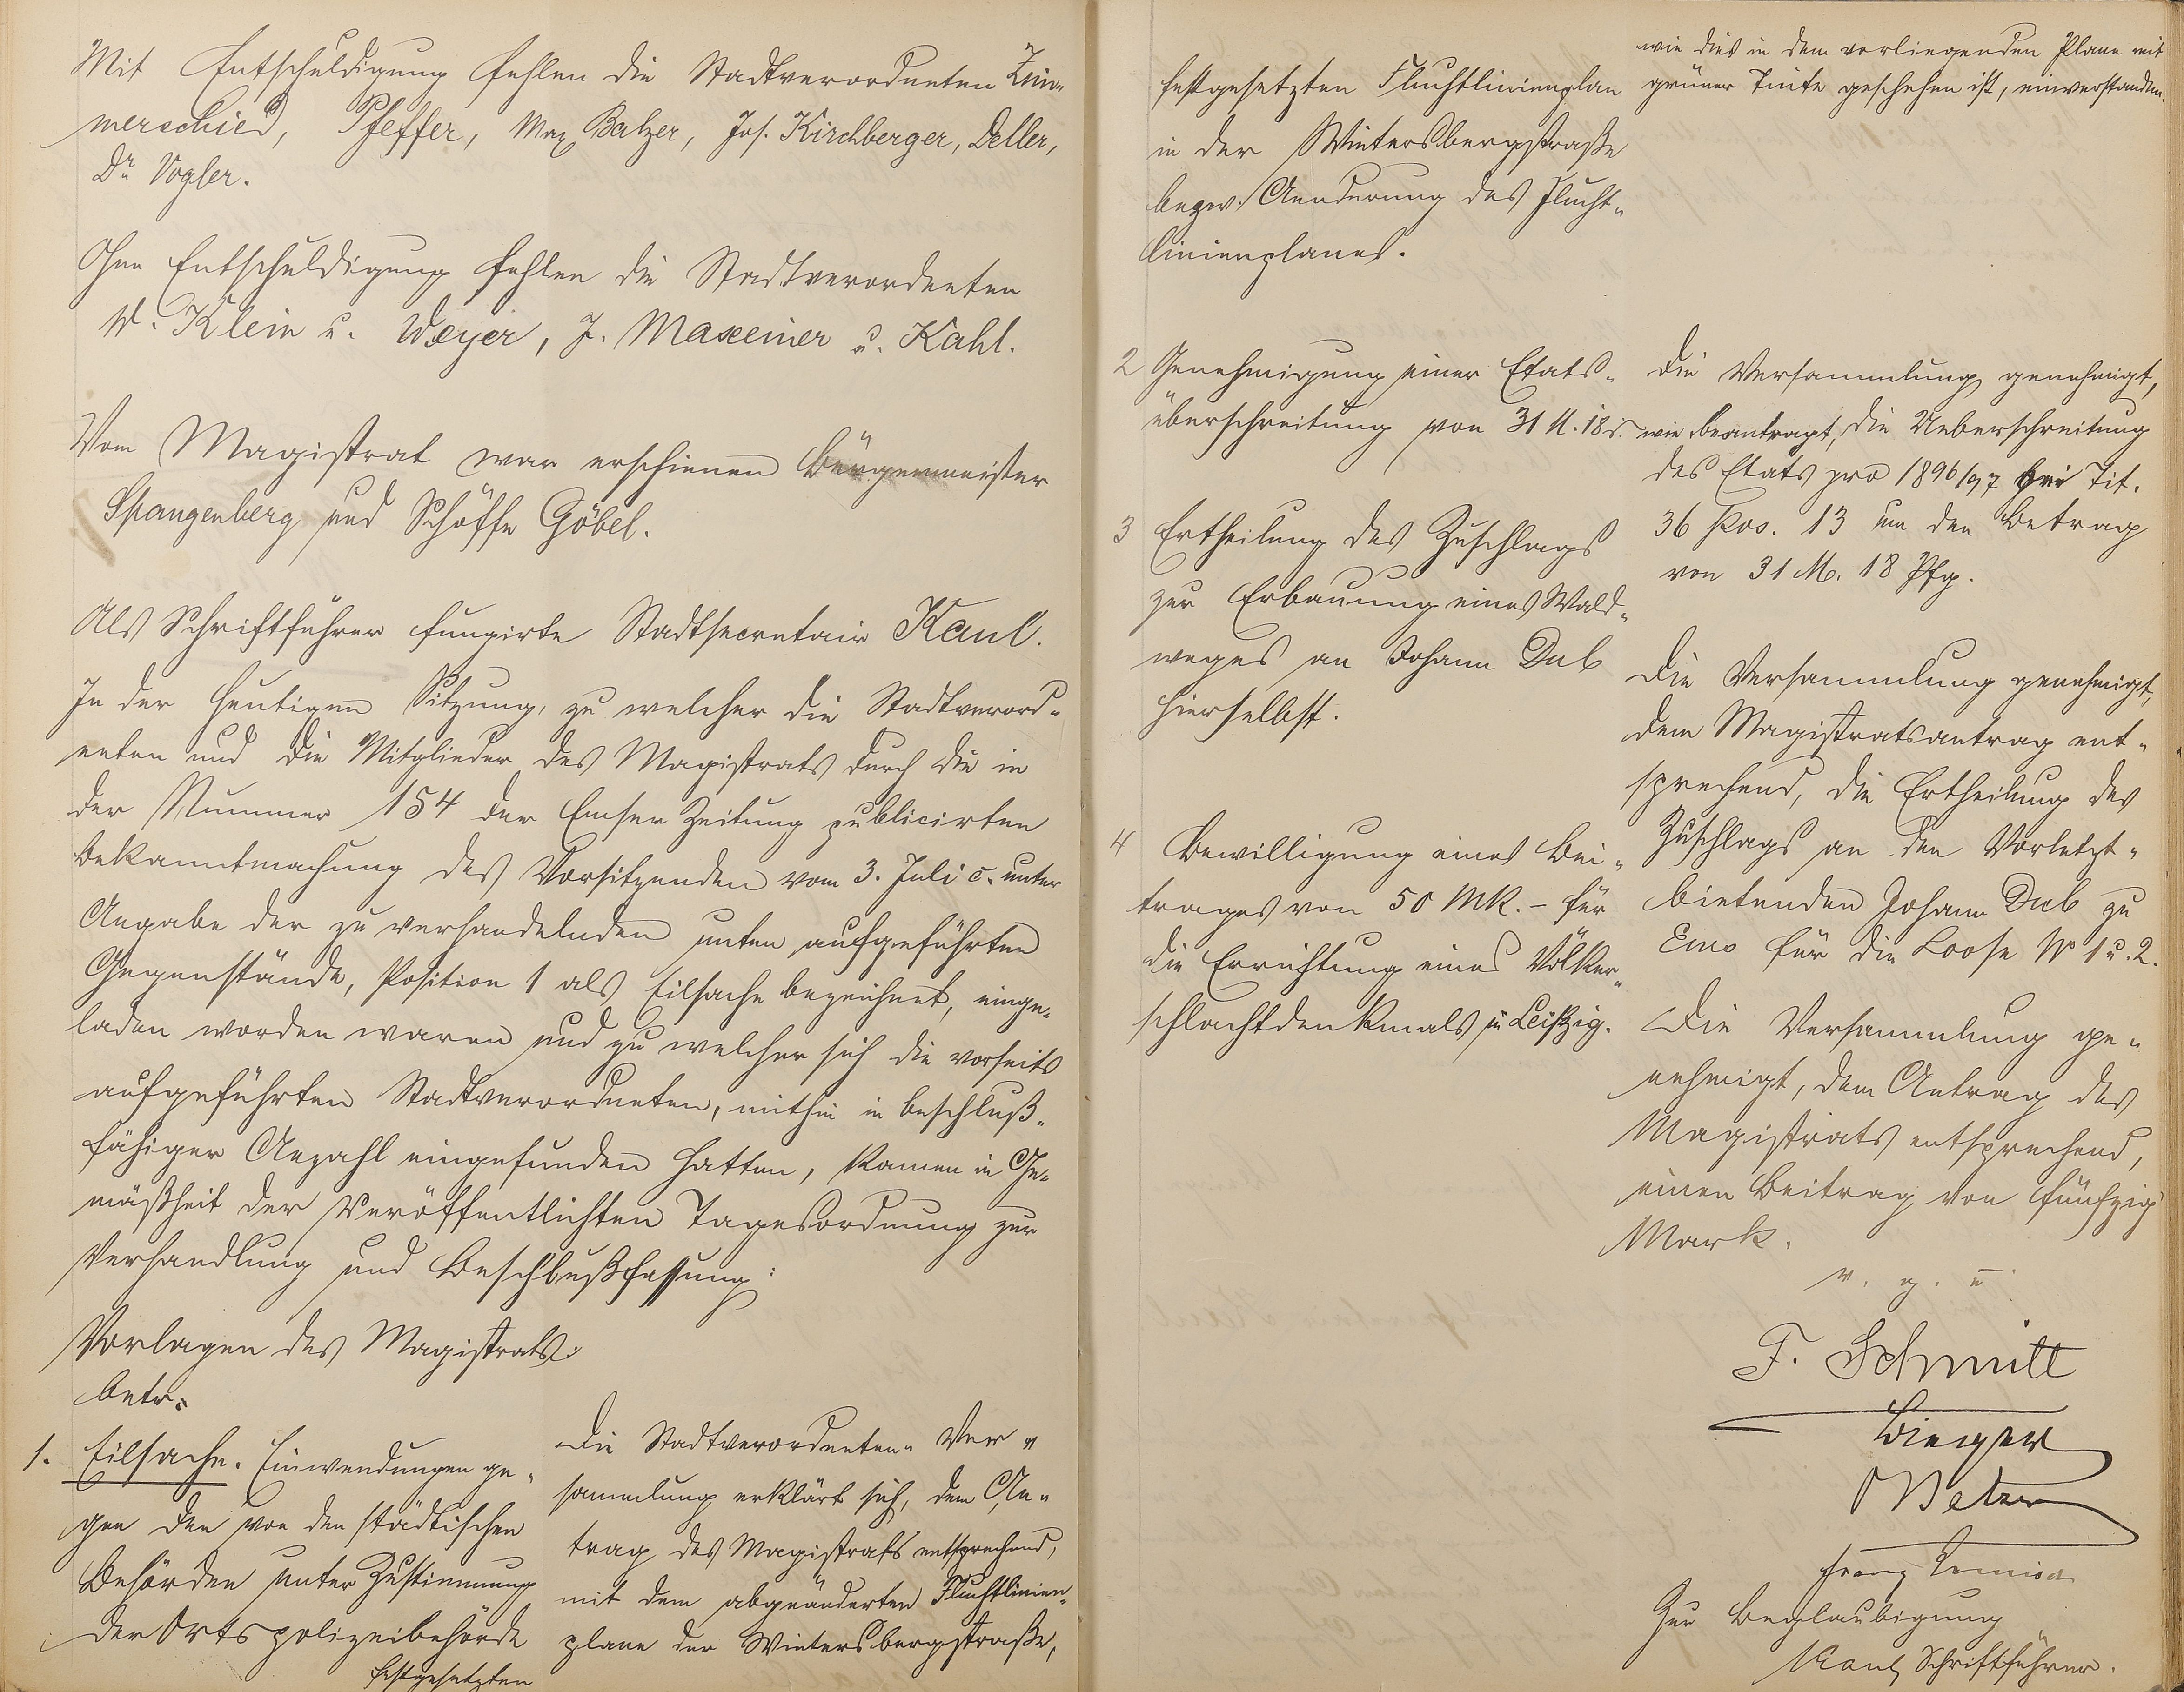 Mit Entschuldigung fehlen die Stadtverordneten Zim-
merschied, Pfeffer, Max Balzer, Jos. Kirchberger, Deller,
Dr Vogler.
Ohne Entschuldigung fehlen die Stadtverordneten
W. Klein u. Weyer, J. Maxeiner u. Kahl.
Vom Magistrat war erschienen Bürgermeister
Spangenberg und Schöffe Göbel.
Als Schriftführer fungirte Stadtsecretair Kaul.
In der heutigen Sitzung, zu welcher die Stadtverord-
neten und die Mitglieder des Magistrats durch die in
der Nummer 154 der Emser Zeitung publicirten
Bekanntmachung des Vorsitzenden vom 3. Juli c. unter
Angabe der zu verhandelnden unten aufgeführten
Gegenstände, Position 1 als Eilsache bezeichnet, einge-
laden worden waren und zu welcher sich die vorseits
aufgeführten Stadtverordneten, mithin in beschluß-
fähiger Anzahl eingefunden hatten, kamen in Ge-
mäßheit der veröffentlichten Tagesordnung zur
Verhandlung und Beschlußfassung:
Vorlagen des Magistrats:
betr.
1. Eilsache. Einwendungen ge-
gen den von den städtischen
Behörden unter Zustimmung
der Ortspolizeibehörde
festgesetzten
Die Stadtverordneten-Ver-
sammlung erklärt sich, dem An-
trag des Magistrats entsprechend,
mit dem abgeänderten Fluchtlinien-
plane der Wintersbergstraße,
festgesetzten Fluchtlinienplan
in der Wintersbergstraße
bezw. Aenderung des Flucht-
linienplanes.
wie dies in dem vorliegenden Plane mit
grüner Tinte geschehen ist, einverstanden.
2 Genehmigung einer Etats-
überschreitung von 31 M. 18 d.
Die Versammlung genehmigt,
wie beantragt, die Ueberschreitung
des Etats pro 1896/97 bei Tit.
36 Pos. 13 um den Betrag
von 31 M. 18 Pfg.
3 Ertheilung des Zuschlags
zur Erbauung eines Wald-
weges an Johann Dub
hierselbst.
Die Versammlung genehmigt,
dem Magistratsantrag ent-
sprechend, die Ertheilung des
Zuschlags an den Vorletzt-
bietenden Johann Dub zu
Ems für die Loose No 1 u. 2.
4 Bewilligung eines Bei-
trages von 50 Mk. - für
die Errichtung eines Völker-
schlachtdenkmals in Leipzig.
Die Versammlung ge-
nehmigt, dem Antrag des
Magistrats entsprechend,
einen Beitrag von fünfzig
Mark.
v. g. u.
F. Schmitt
Franz
Zur Beglaubigung
Kaul, Schriftführer.